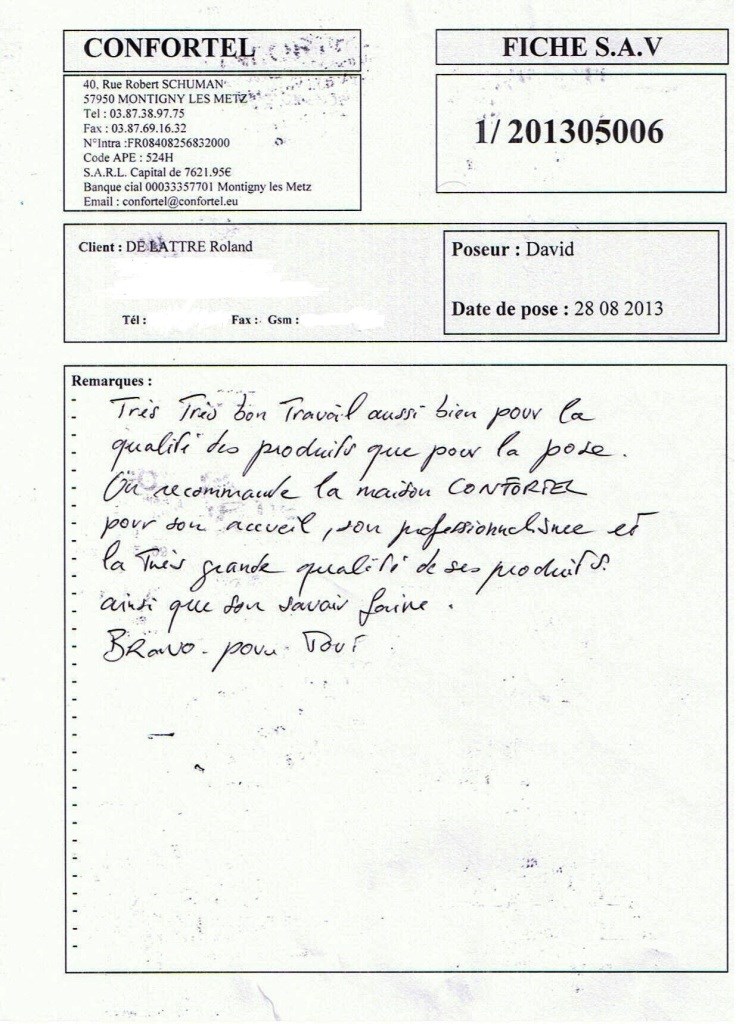 CONFORTEL
40, Rue Robert SCHUMAN
57950 MONTIGNY LES METZ
Tel : 03.87.38.97.75
Fax : 03.87.69.16.32
N°Intra :FR08408256832000
Code APE : 524H
S.A.R.L. Capital de 7621.95€
Banque cial 00033357701 Montigny les Metz
Email : confortel@confortel.eu
FICHE S.A.V
1/ 201305006
Client : DE LATTRE Roland
Tél :
Fax : Gsm :
Poseur : David
Date de pose : 28 08 2013
Remarques :
Très Très bon Travail aussi bien pour la
qualité des produits que pour la pose.
On recommande la maison CONFORTEL
pour son accueil, son professionnalisme et
la Très grande qualité de ses produits.
ainsi que son savoir faire.
BRAVO. pour Tout